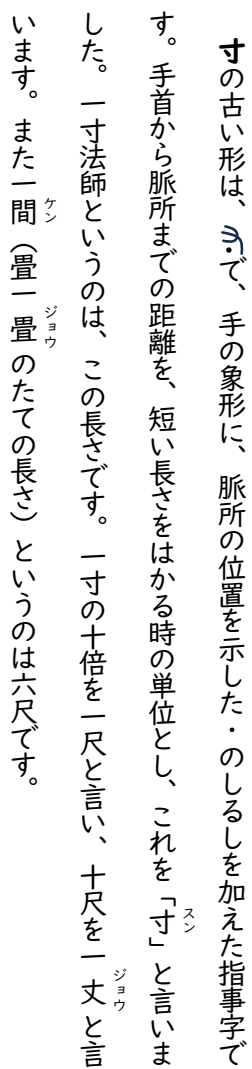 寸の古い形は、で、手の象形に、脈所の位置を示した・のしるしを加えた指事字で
す。手首から脈所までの距離を、短い長さをはかる時の単位とし、これを「寸」と言いま
スン
した。一寸法師というのは、この長さです。一寸の十倍を一尺と言い、十尺を一丈と言
ジョウ
います。また一間（畳一畳のたての長さ）というのは六尺です。
ケン
ジョウ